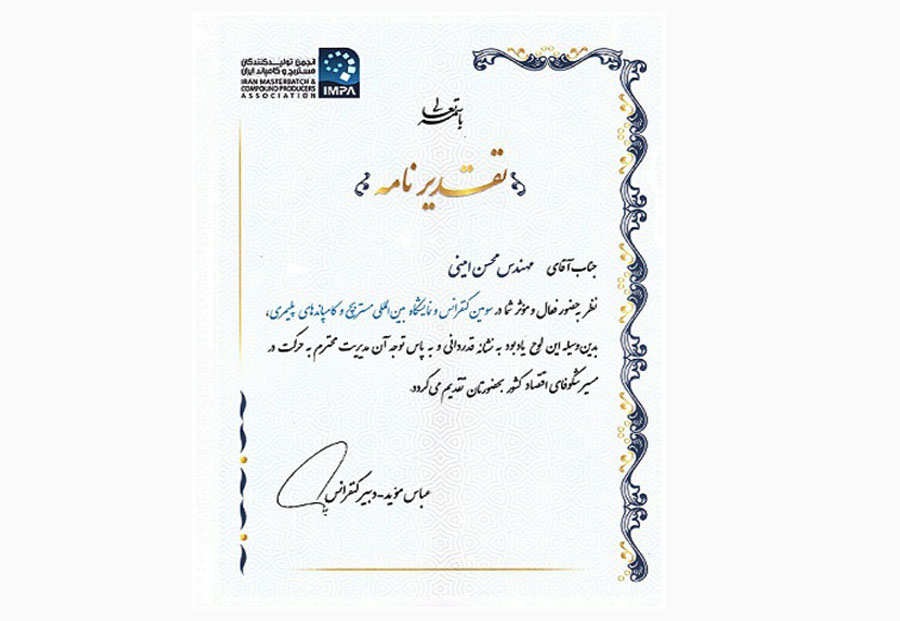 انجمن تولیدکنندگان
مستربچ و کامپاند ایران
IRAN MASTERBATCH &
COMPOUND PRODUCERS
ASSOCIATION
IMPA
باسمه تعالی
تقدیر نامه
جناب آقای مهندس محسن امینی
نظر به حضور فعال و موثر شما در سومین کنفرانس و نمایشگاه بین المللی مستربچ و کامپاندهای پلیمری،
بدین وسیله این لوح یادبود به نشانه قدردانی و به پاس توجه آن مدیریت محترم به حرکت در
مسیر شکوفای اقتصاد کشور بحضورتان تقدیم می گردد.
عباس مؤید-دبیر کنفرانس